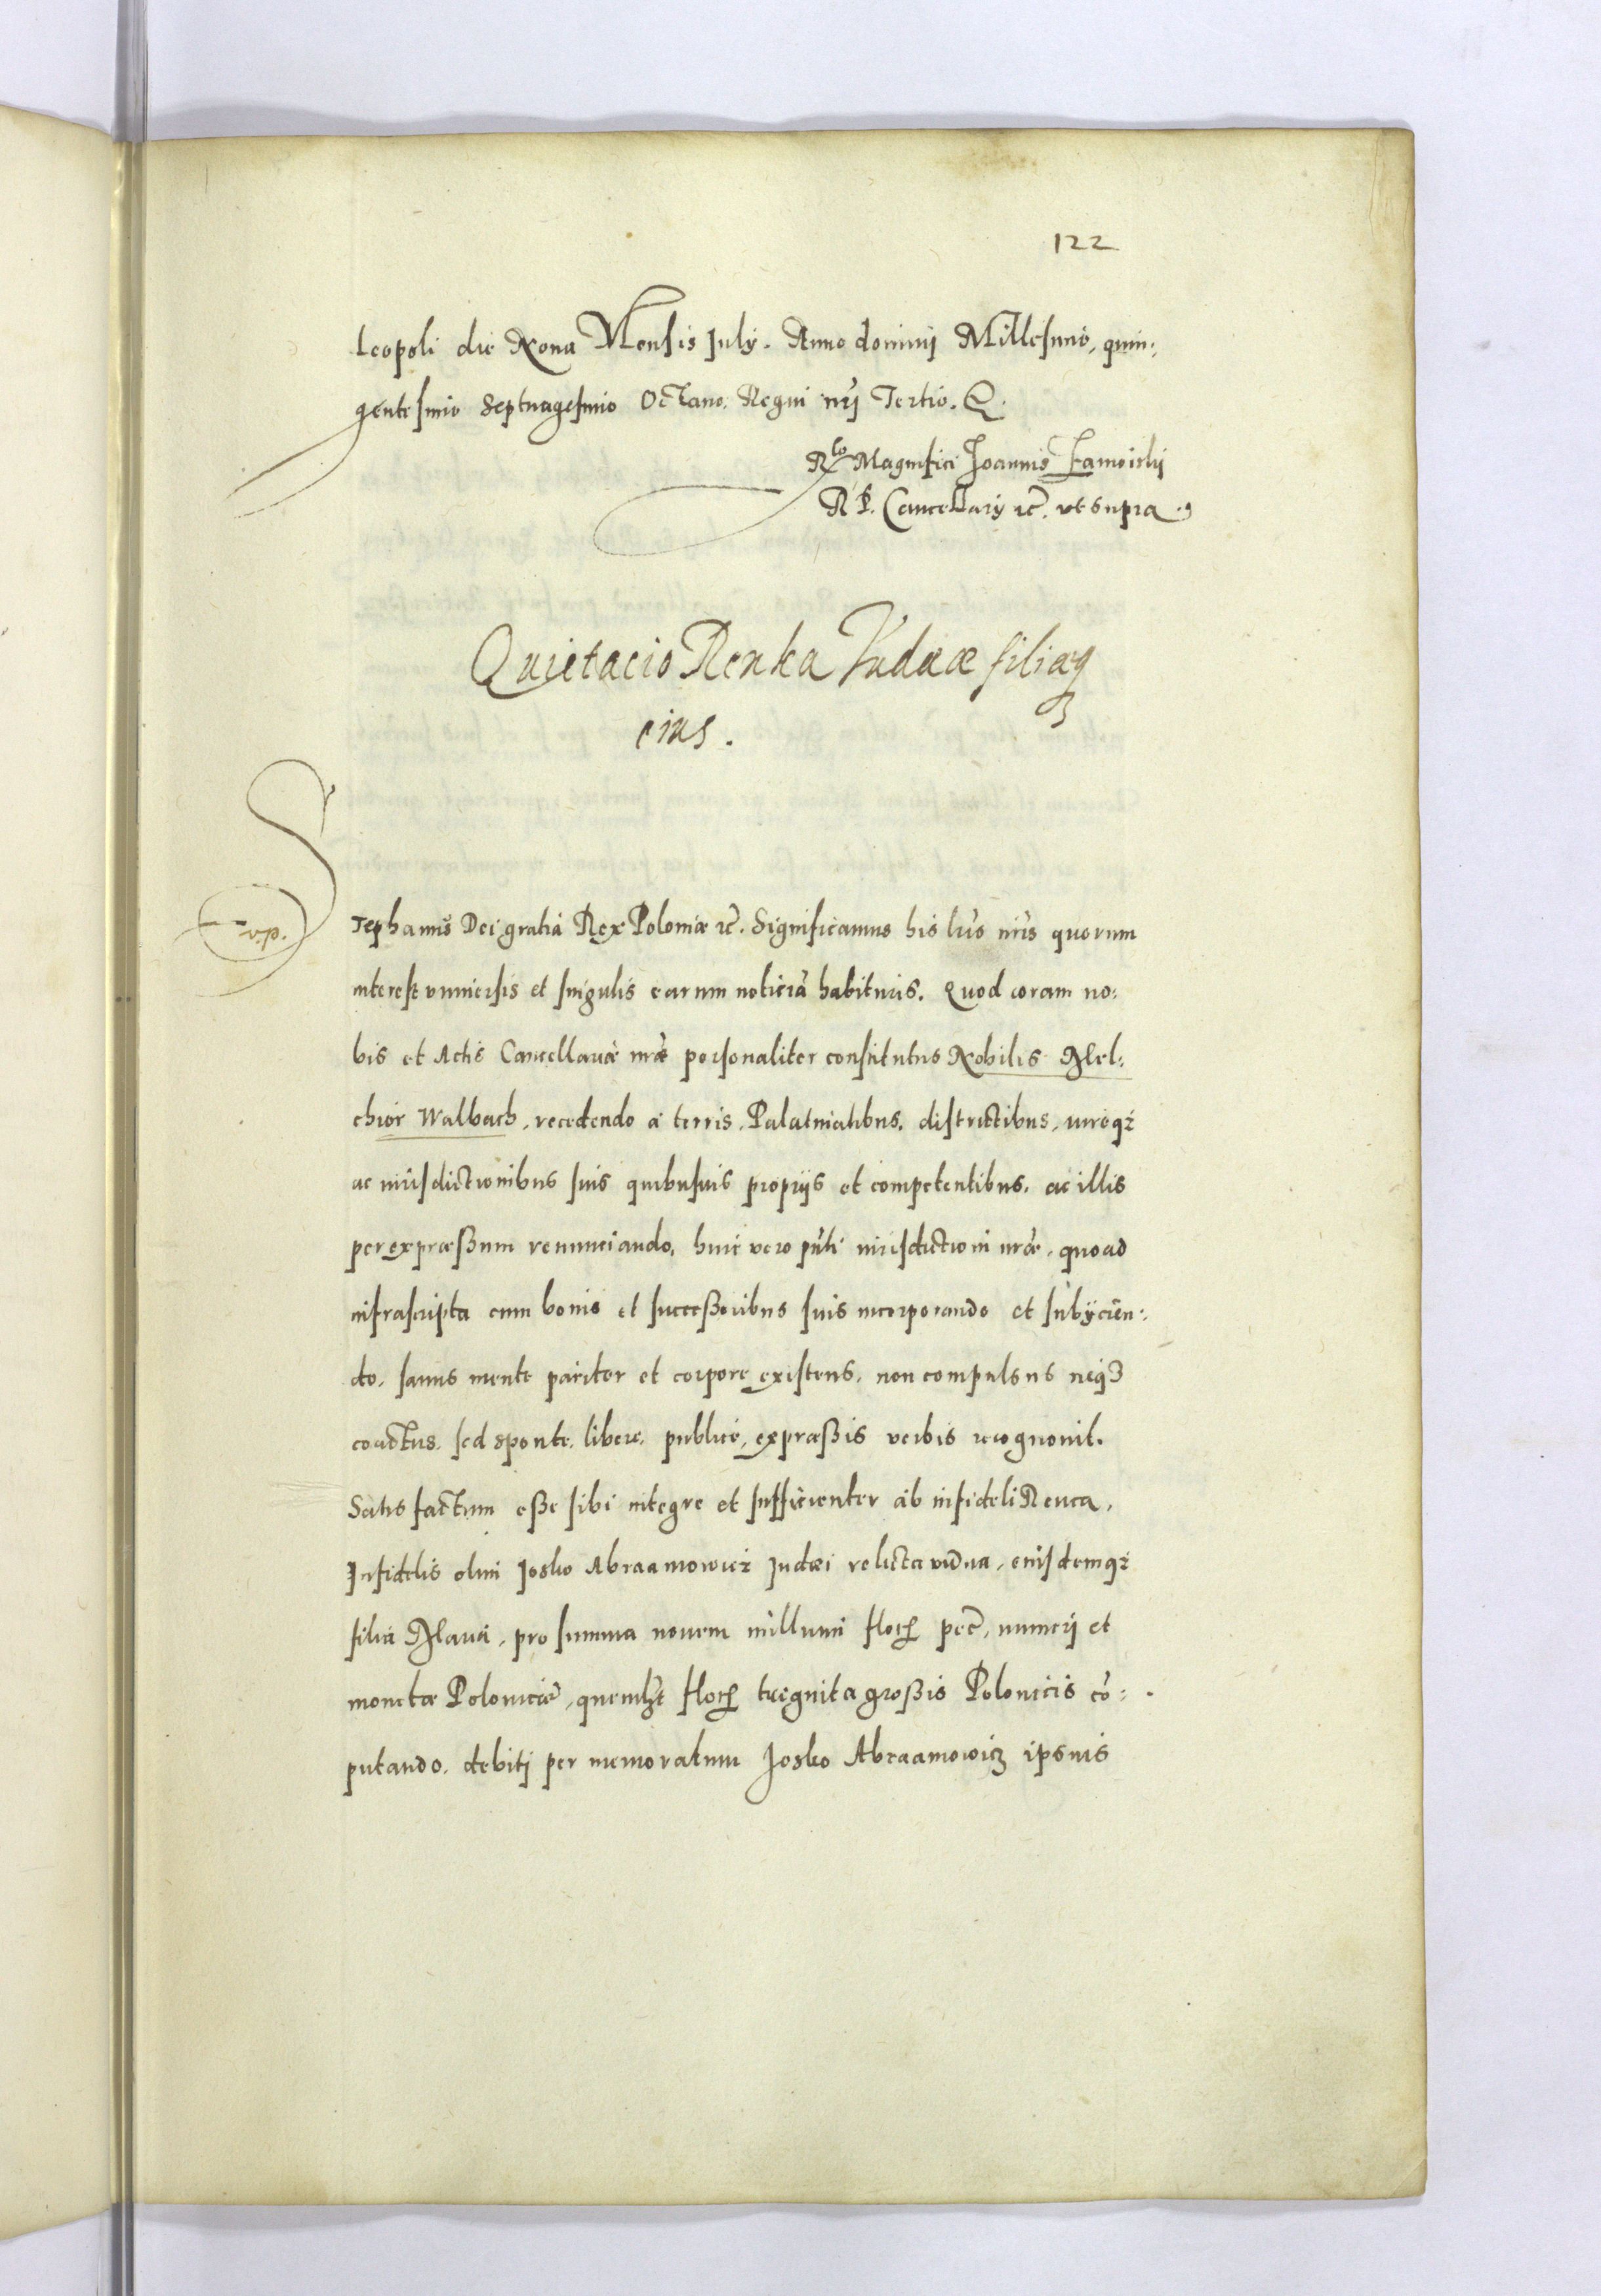 122
Leopoli die Nona Mensis July. Anno dominj Millesimo, quin:
gentesimo Septuagesimo Octauo. Regni nrj Tertio.
Rlo Magnifici Joannis Zamoiskij
R P. Cancellarÿ rc. vt supra.
Quietacio Renka Judææ filiæq
eius.
vp.
Stephanus Dei gratia Rex Poloniæ rc. Significamus his lris nris quorum
interest vniuersis et singulis earum noticiã habituris. Quod coram no:
bis et Actis Cancellariæ nræ personaliter constitutus Nobilis Mel:
chior Walbach, recedendo a terris, Palatinatibus, districtibus, iureqz
ac iurisdictionibus suis quibusuis proprijs et competentibus, ac illis
per expræßum renunciando, huic vero pñti iurisdictioni nræ, quoad
infrascripta cum bonis et succeßoribus suis incorporando et subÿcien:
do, sanus mente pariter et corpore existens, non compulsus neqз
coactus, sed sponte, libere, publicé, expræßis verbis recognouit.
Satisfactum eße sibi integre et sufficienter ab infideli Renca,
Infidelis olim Josko Abraamowicz Judæi relicta vidua, eiusdemqz
filia Maua, pro summa nouem millium flor. pec. numerj et
monetæ Polonicæ, quemlzt flor. triginta großis Polonicis cõ:
putando. debitj per memoratum Josko Abraamowicz ipsius